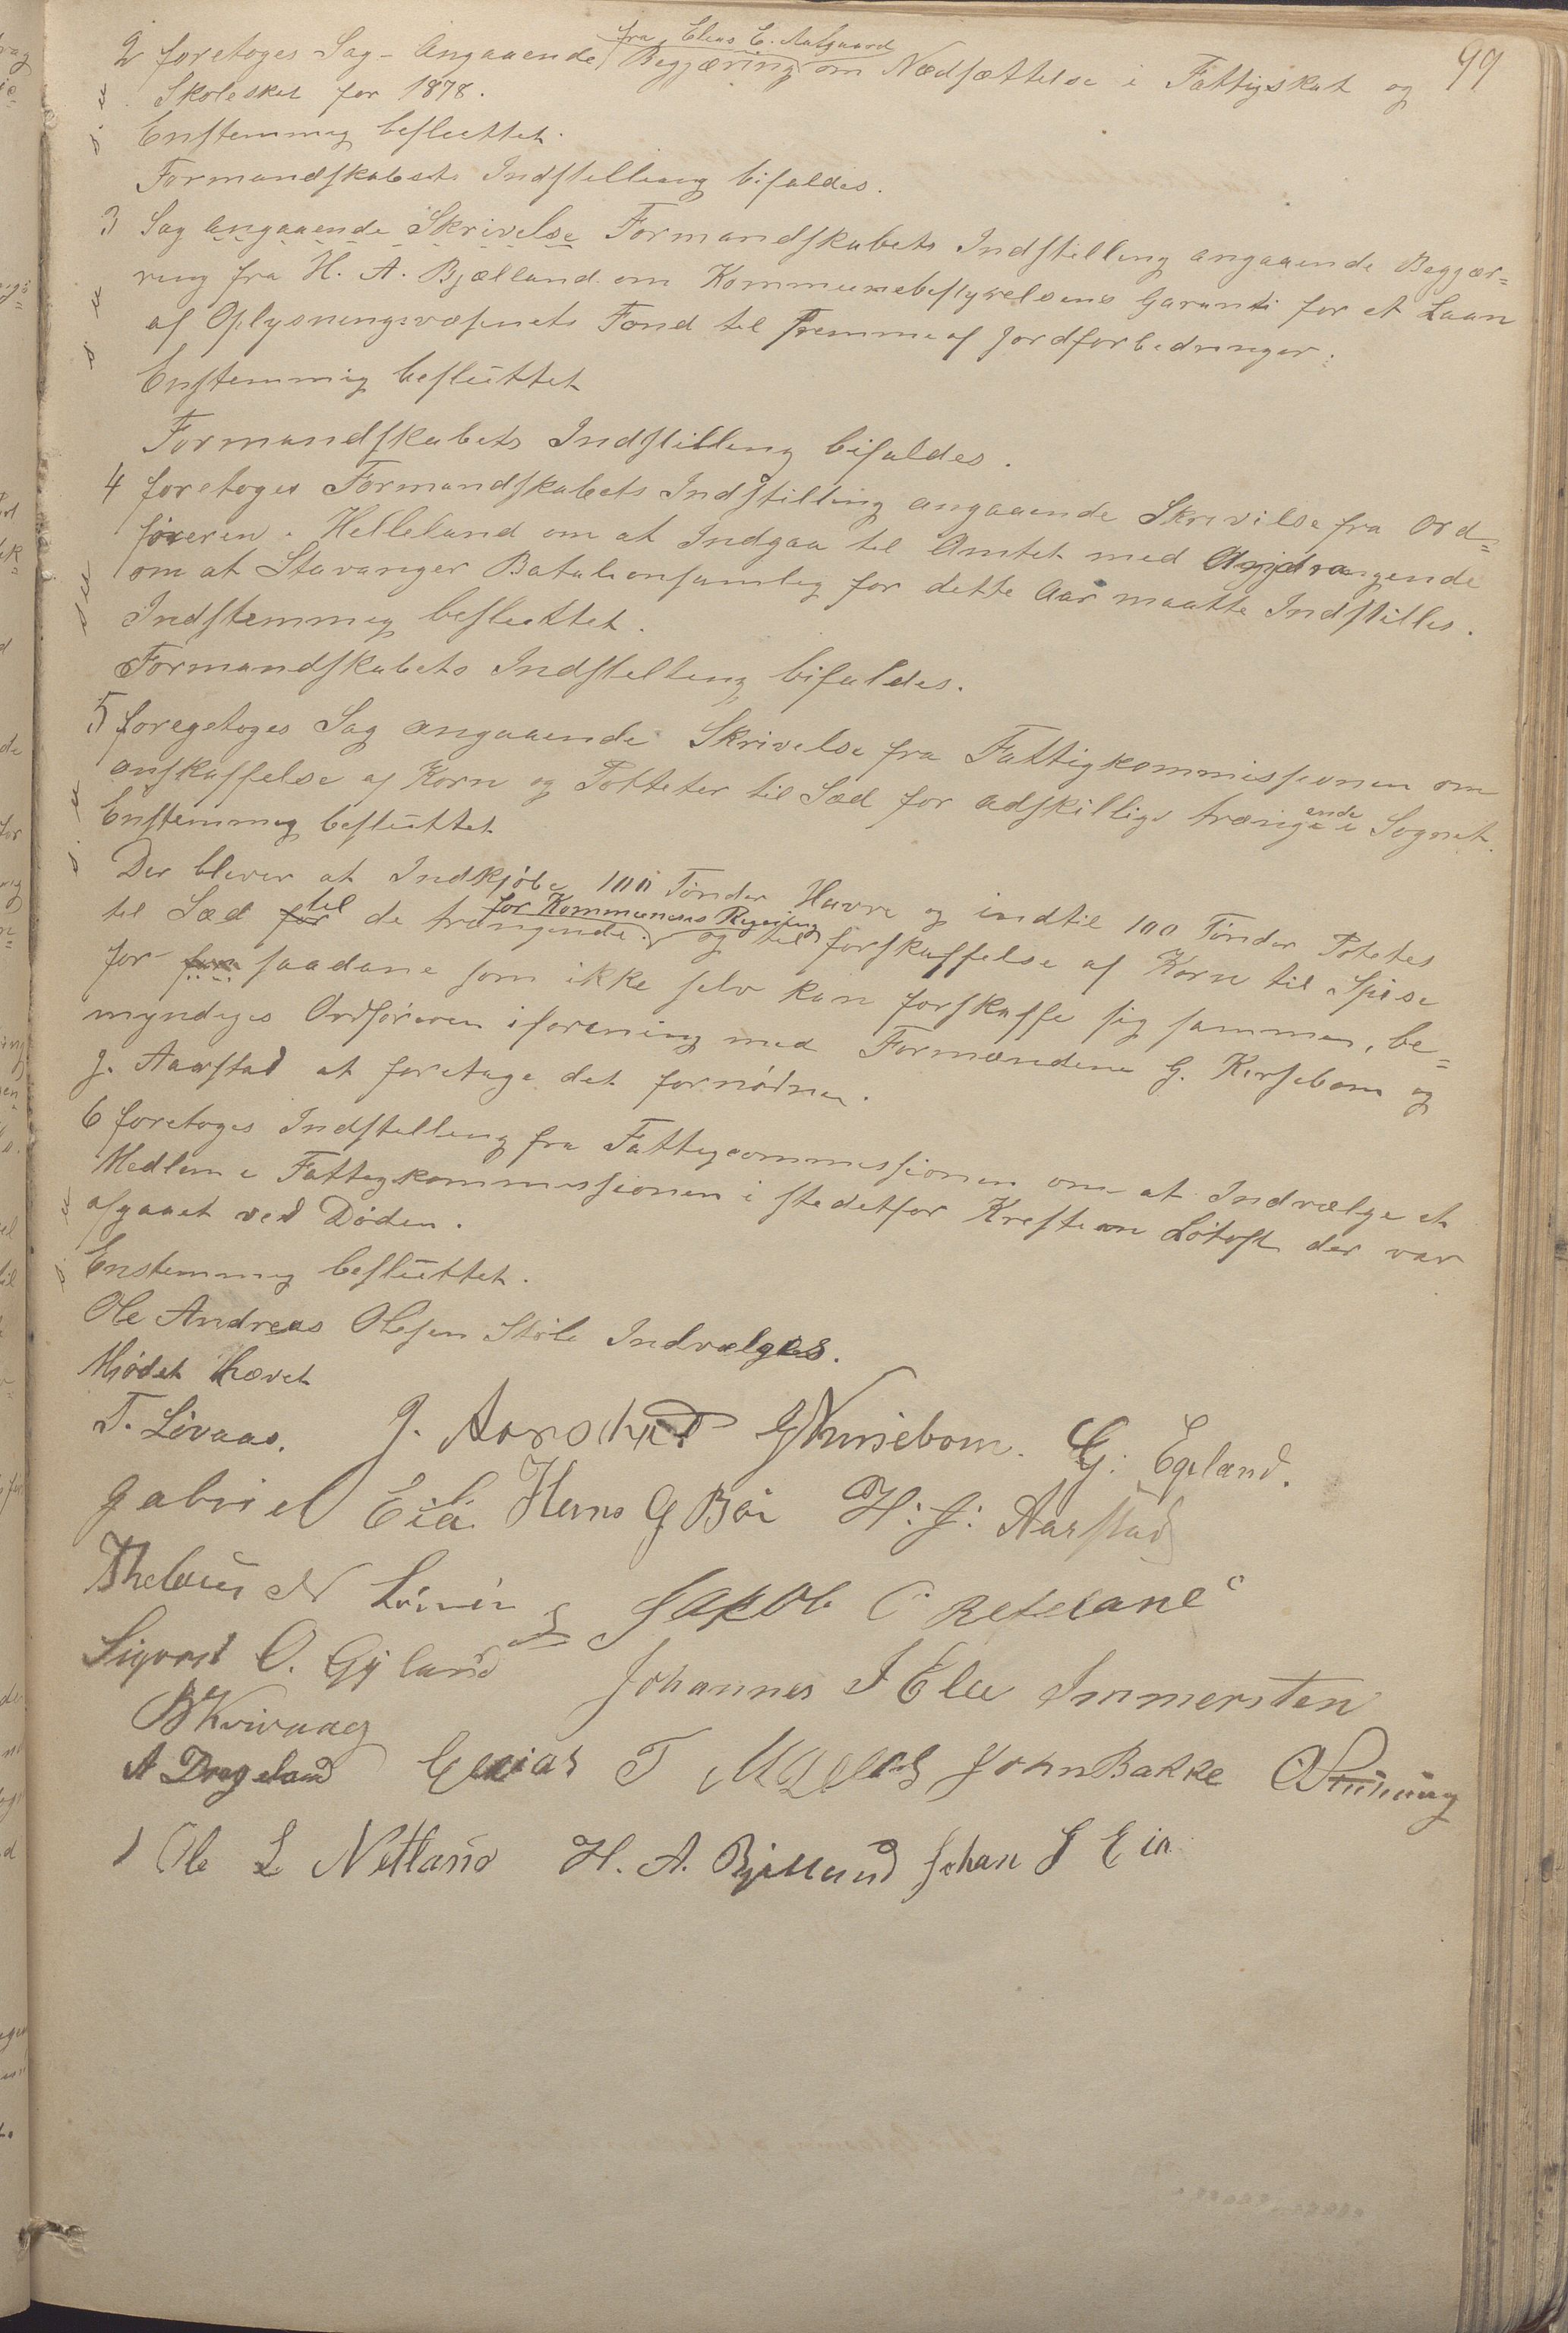 99
2 foretoges Sag - Angaaende fra Elias E. Aalgaard Begjæring om Nedsættelse i Fattigskat og
Skoleskat for 1878.
Enstemmig besluttet.
Formandskabets Indstilling bifaldes.
3 Sag angaaende Skrivelse Formandskabets Indstilling angaaende Beggjær=
ring fra H. A. Bjælland om Kommunebestyrelsens Garanti for et Laan
af Oplysningsvæsnets Fond til Fremme af Jordforbedringer:
Enstemmig besluttet
Formandskabets Indstilling bifaldes.
4 foretoges Formandskabets Indstilling angaaende Skrivilse fra Ord=
føreren Helleland om at Indgaa til Amtet med
om at Stavanger Batalionsamlig for dette Aar maatte Indstilles.
Indstemmig besluttet.
Formandskabets Indstilling bifaldes.
5 foregetoges Sag angaaende Skrivelse fra Fattigkommissionen om
anskaffelse af Korn og Potteter til Sæd for adskillige trængende i Sognet.
Enstemmig besluttet
Der bliver at Indkjøbe 100 Tønder Havre og indtil 100 Tønder Potetes
til Sæd for til de trængende for Kommunens Regning og til forskaffelse af Korn til Spise
for saadane som ikke selv kan forskaffe sig sammen, be=
myndiges Ordføreren iforening med Formændene G. Kersebom og
J. Aarstad at foretage det fornødne.
6 foretoges Indstilling fra Fattigcommissionen om at Indvælge et
Medlem i Fattigkommissionen i stedetfor Krestian Løtoft der var
afgaaet ved Døden.
Enstemmig besluttet.
Ole Andreas Olesen Støle Indvælges.
Mødet hævet
T. Løvaas. J. Aarstad G Kersebom. G. Egeland.
Gabriel Eiå Hans G Bøe H. J. Aarstad
Jakob
Sigvard O. Gyland Johannes J Elve Immersten
B Kvivaag
A Drageland Elias T John Bakke
Ole L Netland H. A. Bjelland Johan J Eia